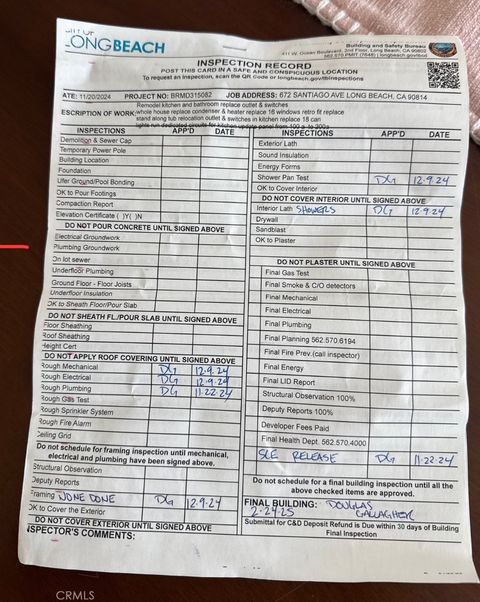 LONGBEACH
Building and Safety Bureau
411 W. Ocean Boulevard, 2nd Floor, Long Beach, CA 90802
562.570.PMIT (7648) | longbeach.gov/lbcd
INSPECTION RECORD
POST THIS CARD IN A SAFE AND CONSPICUOUS LOCATION
To request an inspection, scan the QR Code or longbeach.gov/lbinspections
ATE: 11/20/2024 PROJECT NO: BRMD315082 JOB ADDRESS: 672 SANTIAGO AVE LONG BEACH, CA 90814
ESCRIPTION OF WORK: Remodel kitchen and bathroom replace outlet & switches
whole house replace condenser & heater replace 16 windows retro fit replace
stand along tub relocation outlet & switches in kitchen replace 18 can
lights run dedicated circuits for kitchen update panel from 100 a to 200a
INSPECTIONS APP'D DATE
Demolition & Sewer Cap
Temporary Power Pole
Building Location
Foundation
Ufer Ground/Pool Bonding
OK to Pour Footings
Compaction Report
Elevation Certificate ( )Y( )N
DO NOT POUR CONCRETE UNTIL SIGNED ABOVE
Electrical Groundwork
Plumbing Groundwork
On lot sewer
Underfloor Plumbing
Ground Floor - Floor Joists
Underfloor Insulation
OK to Sheath Floor/Pour Slab
DO NOT SHEATH FL./POUR SLAB UNTIL SIGNED ABOVE
Floor Sheathing
Roof Sheathing
Height Cert
DO NOT APPLY ROOF COVERING UNTIL SIGNED ABOVE
Rough Mechanical DG 12.9.24
Rough Electrical DG 12.9.24
Rough Plumbing DG 11.22.24
Rough Gas Test
Rough Sprinkler System
Rough Fire Alarm
Ceiling Grid
Do not schedule for framing inspection until mechanical,
electrical and plumbing have been signed above.
Structural Observation
Deputy Reports
Framing NONE DONE DG 12.9.24
OK to Cover the Exterior
DO NOT COVER EXTERIOR UNTIL SIGNED ABOVE
NSPECTOR'S COMMENTS:
INSPECTIONS APP'D DATE
Exterior Lath
Sound Insulation
Energy Forms
Shower Pan Test DG 12.9.24
OK to Cover Interior
DO NOT COVER INTERIOR UNTIL SIGNED ABOVE
Interior Lath SHOWERS DG 12.9.24
Drywall
Sandblast
OK to Plaster
DO NOT PLASTER UNTIL SIGNED ABOVE
Final Gas Test
Final Smoke & C/O detectors
Final Mechanical
Final Electrical
Final Plumbing
Final Planning 562.570.6194
Final Fire Prev.(call inspector)
Final Energy
Final LID Report
Structural Observation 100%
Deputy Reports 100%
Developer Fees Paid
Final Health Dept. 562.570.4000
SCE RELEASE DG 11-22-24
Do not schedule for a final building inspection until all the
above checked items are approved.
FINAL BUILDING: DOUGLAS
2-24-25 GALLAGHER
Submittal for C&D Deposit Refund is Due within 30 days of Building
Final Inspection
CRMLS